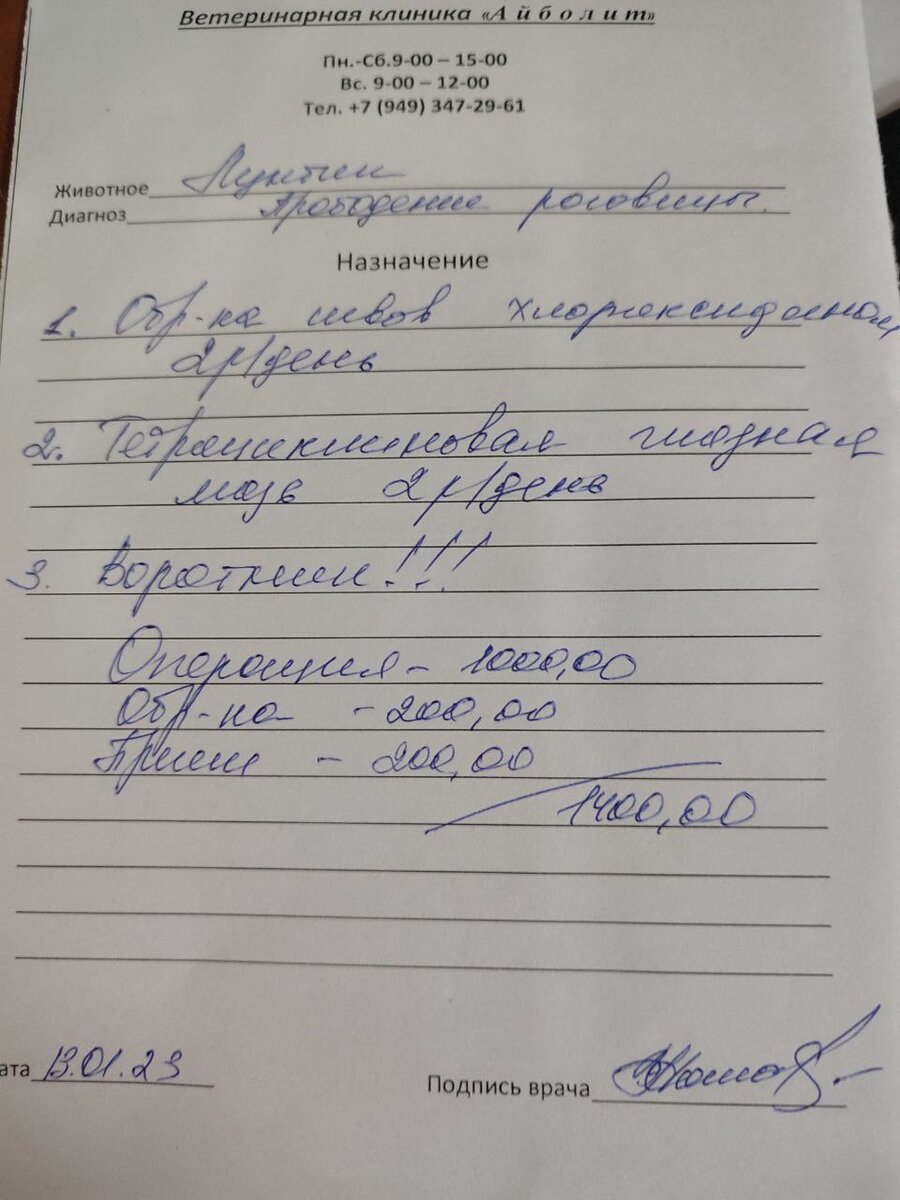 Ветеринарная клиника «Айболит»
Пн.-Сб.9-00 – 15-00
Вс. 9-00 – 12-00
Тел. +7 (949) 347-29-61
Животное
Диагноз Прободение роговицы.
Назначение
1. Обр-ка швов хлоргексидином
2р/день
2. Тетрациклиновая глазная
мазь 2р/день
3. Воротник!!!
Операция – 1000,00
Обр-ка – 200,00
Прием – 200,00
1400,00
ата 13.01.23
Подпись врача